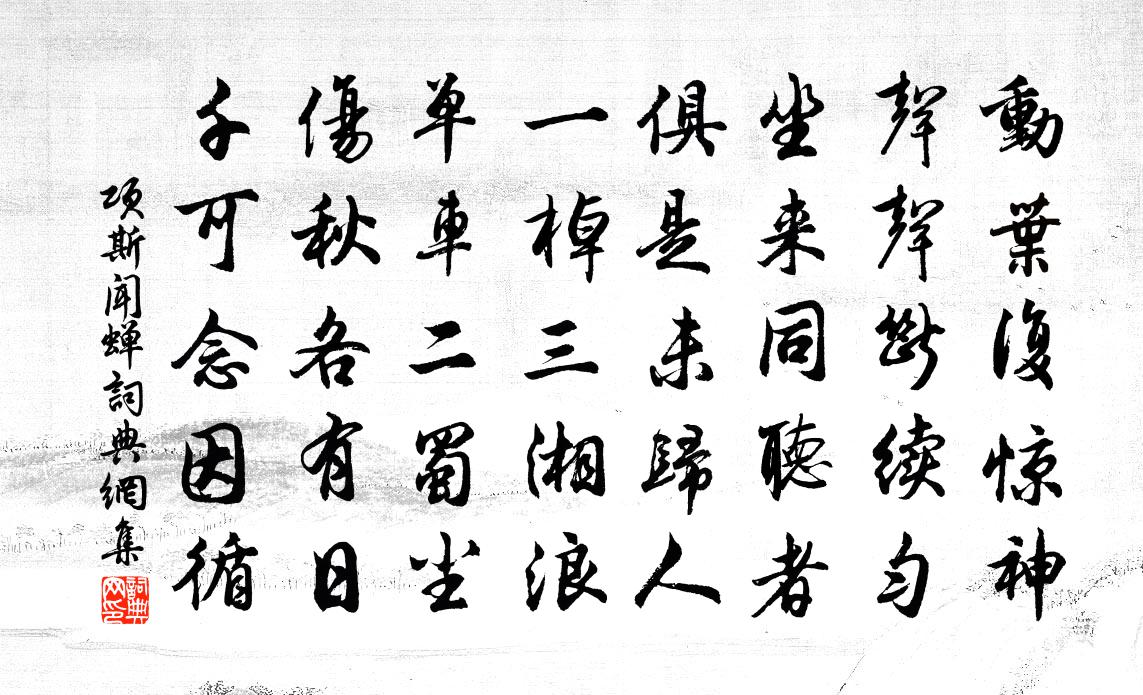 動葉復惊神
聲聲斷续匀
坐来同聽者
俱是未歸人
一棹三湘浪
单車二蜀尘
傷秋各有日
千可念因循
項斯闻蝉詞典網集
詞典网印